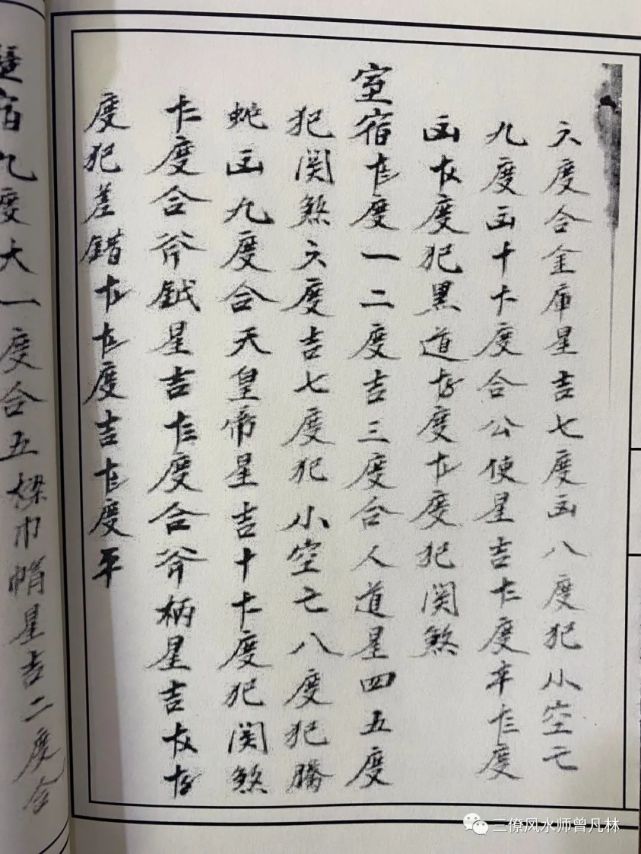 六度合金庫星吉七度凶八度犯小空亡
九度凶十十一度合公使星吉十二度平十三度
凶十四度犯黑道十五度十六度犯関煞
室宿十八度一二度吉三度合人道星四五度
犯関煞六度吉七度犯小空亡八度犯騰
蛇凶九度合天皇帝星吉十十一度犯関煞
十二度合斧鉞星吉十三度合斧柄星吉十四十五
度犯差錯十六十七度吉十八度平
壁宿九度大一度合五樑巾星吉二度合
三僚风水师曾凡林